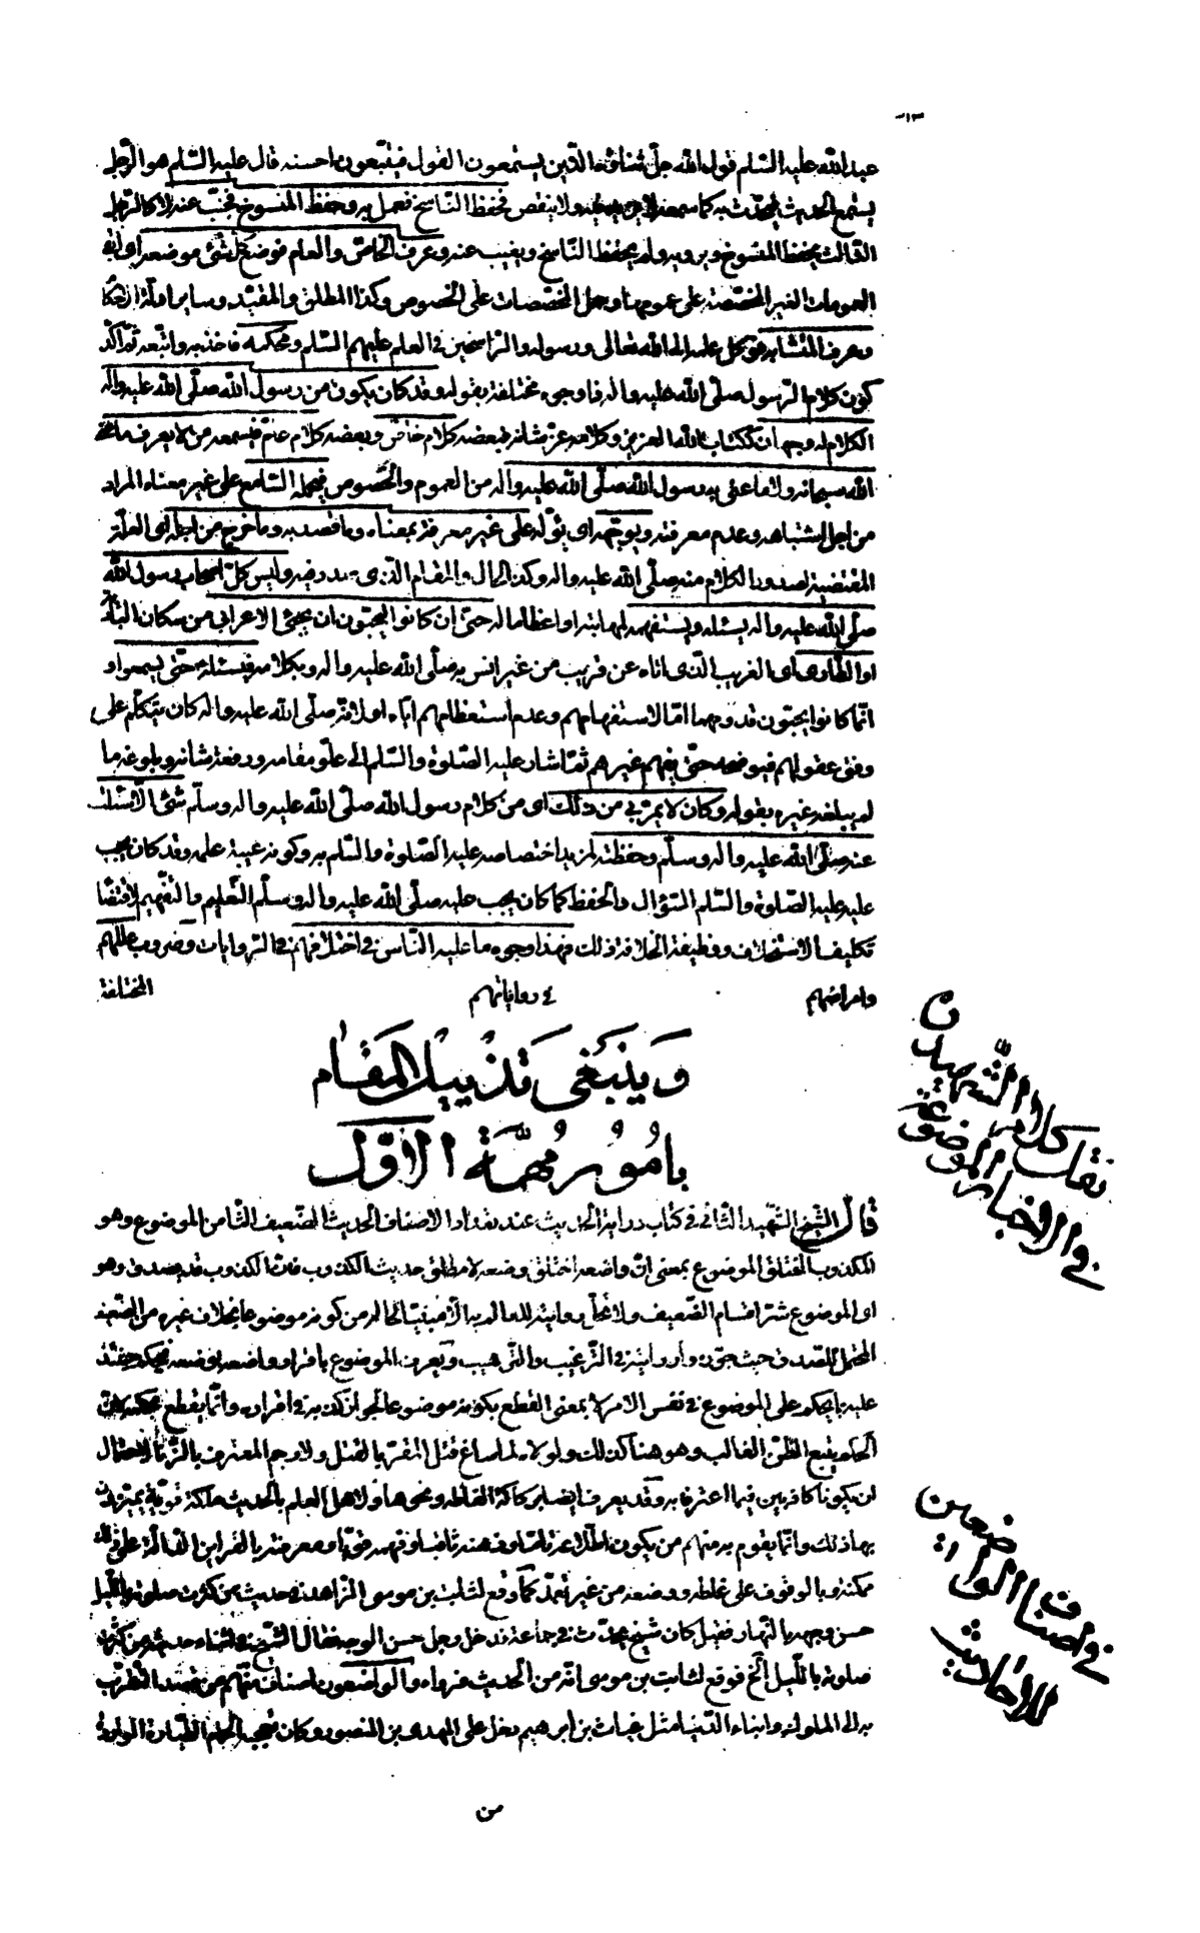 عبد الله عليه السّلم قول الله جلّ ثناؤه الّذين يستمعون القول فيتّبعون احسنه قال عليه السّلم هو الرّجل
يستمع الحديث فيحدّث به كما سمعه لا يزيد فيه ولا ينقص فحفظ النّاسخ فعمل به وحفظ المنسوخ فجنّب عنه لا كالرّجل
الثالث يحفظ المنسوخ ويرويه ولم يحفظ النّاسخ ويغيب عنه وعرف الخاصّ والعام فوضع كلّ شئ موضعه اى ابقى
العمومات الغير المخصّصة على عمومها وحمل المخصّصات على الخصوص وكذا المطلق والمقيّد وساير
وعرف المتشابه فوكل علمه الى الله تعالى ورسوله والرّاسخين فى العلم عليهم السّلم ومحكمه فاخذ به واتّبعه ثمّ اكّد
كون كلام الرّسول صلّى الله عليه واله ذا وجوه مختلفة بقوله وقد كان يكون من رسول الله صلّى الله عليه واله
الكلام له وجهان ككتاب الله العزيز وكلامه عزّ شانه فبعضه كلام خاصّ وبعضه كلام عامّ فيسمعه من لا يعرف ما عنى
الله سبحانه ولا ما عنى به رسول الله صلّى الله عليه واله من العموم والخصوص فيحمله السّامع على غير معناه المراد
من اجل اشتباهه وعدم معرفته ويوجّهه اى يؤلّه على غير معرفة بمعناه وما قصد به وما خرج من اجله اى العلّة
المقتضية لصدور الكلام منه صلّى الله عليه واله وكذا الحال والمقام الّذى صدر فيه وليس كلّ اصحاب رسول الله
صلّى الله عليه واله يسئله ويستفهمه لمهابته او اعظاما له حتّى ان كانوا ليحبّون ان يجئ الاعرابى من سكان البادية
او الطّارى اى الغريب الّذى اتاه عن قريب من غير انس به صلّى الله عليه واله وبكلامه فيسئله حتّى يسمعوا و
انّما كانوا يحبّون قدومهما امّا لاستفهامهم وعدم استعظامهم ايّاه او لانّه صلّى الله عليه واله كان يتكلّم على
وفق عقولهم فيوضحه حتّى يفهم غيرهم ثمّ اشار عليه الصّلوة والسّلم الى علوّ مقامه ورفعة شانه وبلوغه ما
لم يبلغه غيره بقوله وكان لا يمرّ بى من ذلك اى من كلام رسول الله صلّى الله عليه واله وسلّم شئ الّا سئلت
عنه صلّى الله عليه واله وسلّم وحفظته لمزيد اختصاصه عليه الصّلوة والسّلم به وكونه عيبة علمه وقد كان يجب
عليه عليه الصّلوة والسّلم السّؤال والحفظ كما كان يجب عليه صلّى الله عليه واله وسلّم التّعليم والتّفهيم لاقتضا
تكليف الاستخلاف ووظيفة الخلافة ذلك فهذا وجوه ما عليه النّاس فى اختلافهم فى الرّوايات وضروب عللهم
وامراضهم فى رواياتهم المختلفة
وينبغى تذييل المقام
بامور مهمّة الاوّل
نقل كلام الشّهيد ن
فى الاخبار الموضوعة
قال الشّيخ الشّهيد الثّانى فى كتاب دراية الحديث عند تعداد الاصناف الحديث الضّعيف الثّامن الموضوع وهو
المكذوب المختلق الموضوع بمعنى انّ واضعه اختلقه وضعه لا مطلق حديث الكذوب فانّ الكذوب قد يصدق وهو
اى الموضوع شرّ اقسام الضّعيف ولا تحلّ روايته للعالم به الّا مبيّنا لحاله من كونه موضوعا بخلاف غيره من الضّعيف
المحتمل للصّدق حيث جوّزوا روايته فى التّرغيب والتّرهيب ويعرف الموضوع باقرار واضعه بوضعه فيحكم حينئذ
عليه بما يحكم على الموضوع فى نفس الامر لا بمعنى القطع بكونه موضوعا لجواز كذبه فى اقراره وانّما يقطع بحكمه لانّ
الحكم يتبع الظّنّ الغالب وهو هنا كذلك ولولاه لما ساغ قتل المقرّ بالقتل ولا رجم المعترف بالزّنا لاحتمال
ان يكونا كاذبين فيما اعترفا به وقد يعرف ايضا بركاكة الفاظه ونحوها ولاهل العلم بالحديث ملكة قويّة يميّزون
بها ذلك وانّما يقوم به منهم من يكون اطّلاعه تامّا وذهنه ثاقبا وفهمه قويّا ومعرفته بالقراين الدّالّة على ذلك
ممكنة وبالوقوف على غلطه ووضعه من غير تعمّد كما وقع لثابت بن موسى الزّاهد فى حديث من كثرت صلوته باللّيل
حسن وجهه بالنّهار فقيل كان شيخ يحدّث فى جماعة فدخل رجل حسن الوجه فقال الشّيخ فى اثناء حديثه من كثرت
صلوته باللّيل الخ فوقع لثابت بن موسى انّه من الحديث فرواه والواضعون اصناف منهم من قصد التّقرّب
به الى الملوك وابناء الدّنيا مثل غياث بن ابرهيم دخل على المهدى بن المنصور وكان يعجبه الحمام الطّيارة الواردة
فى اصناف الواضعين
للاحاديث
من